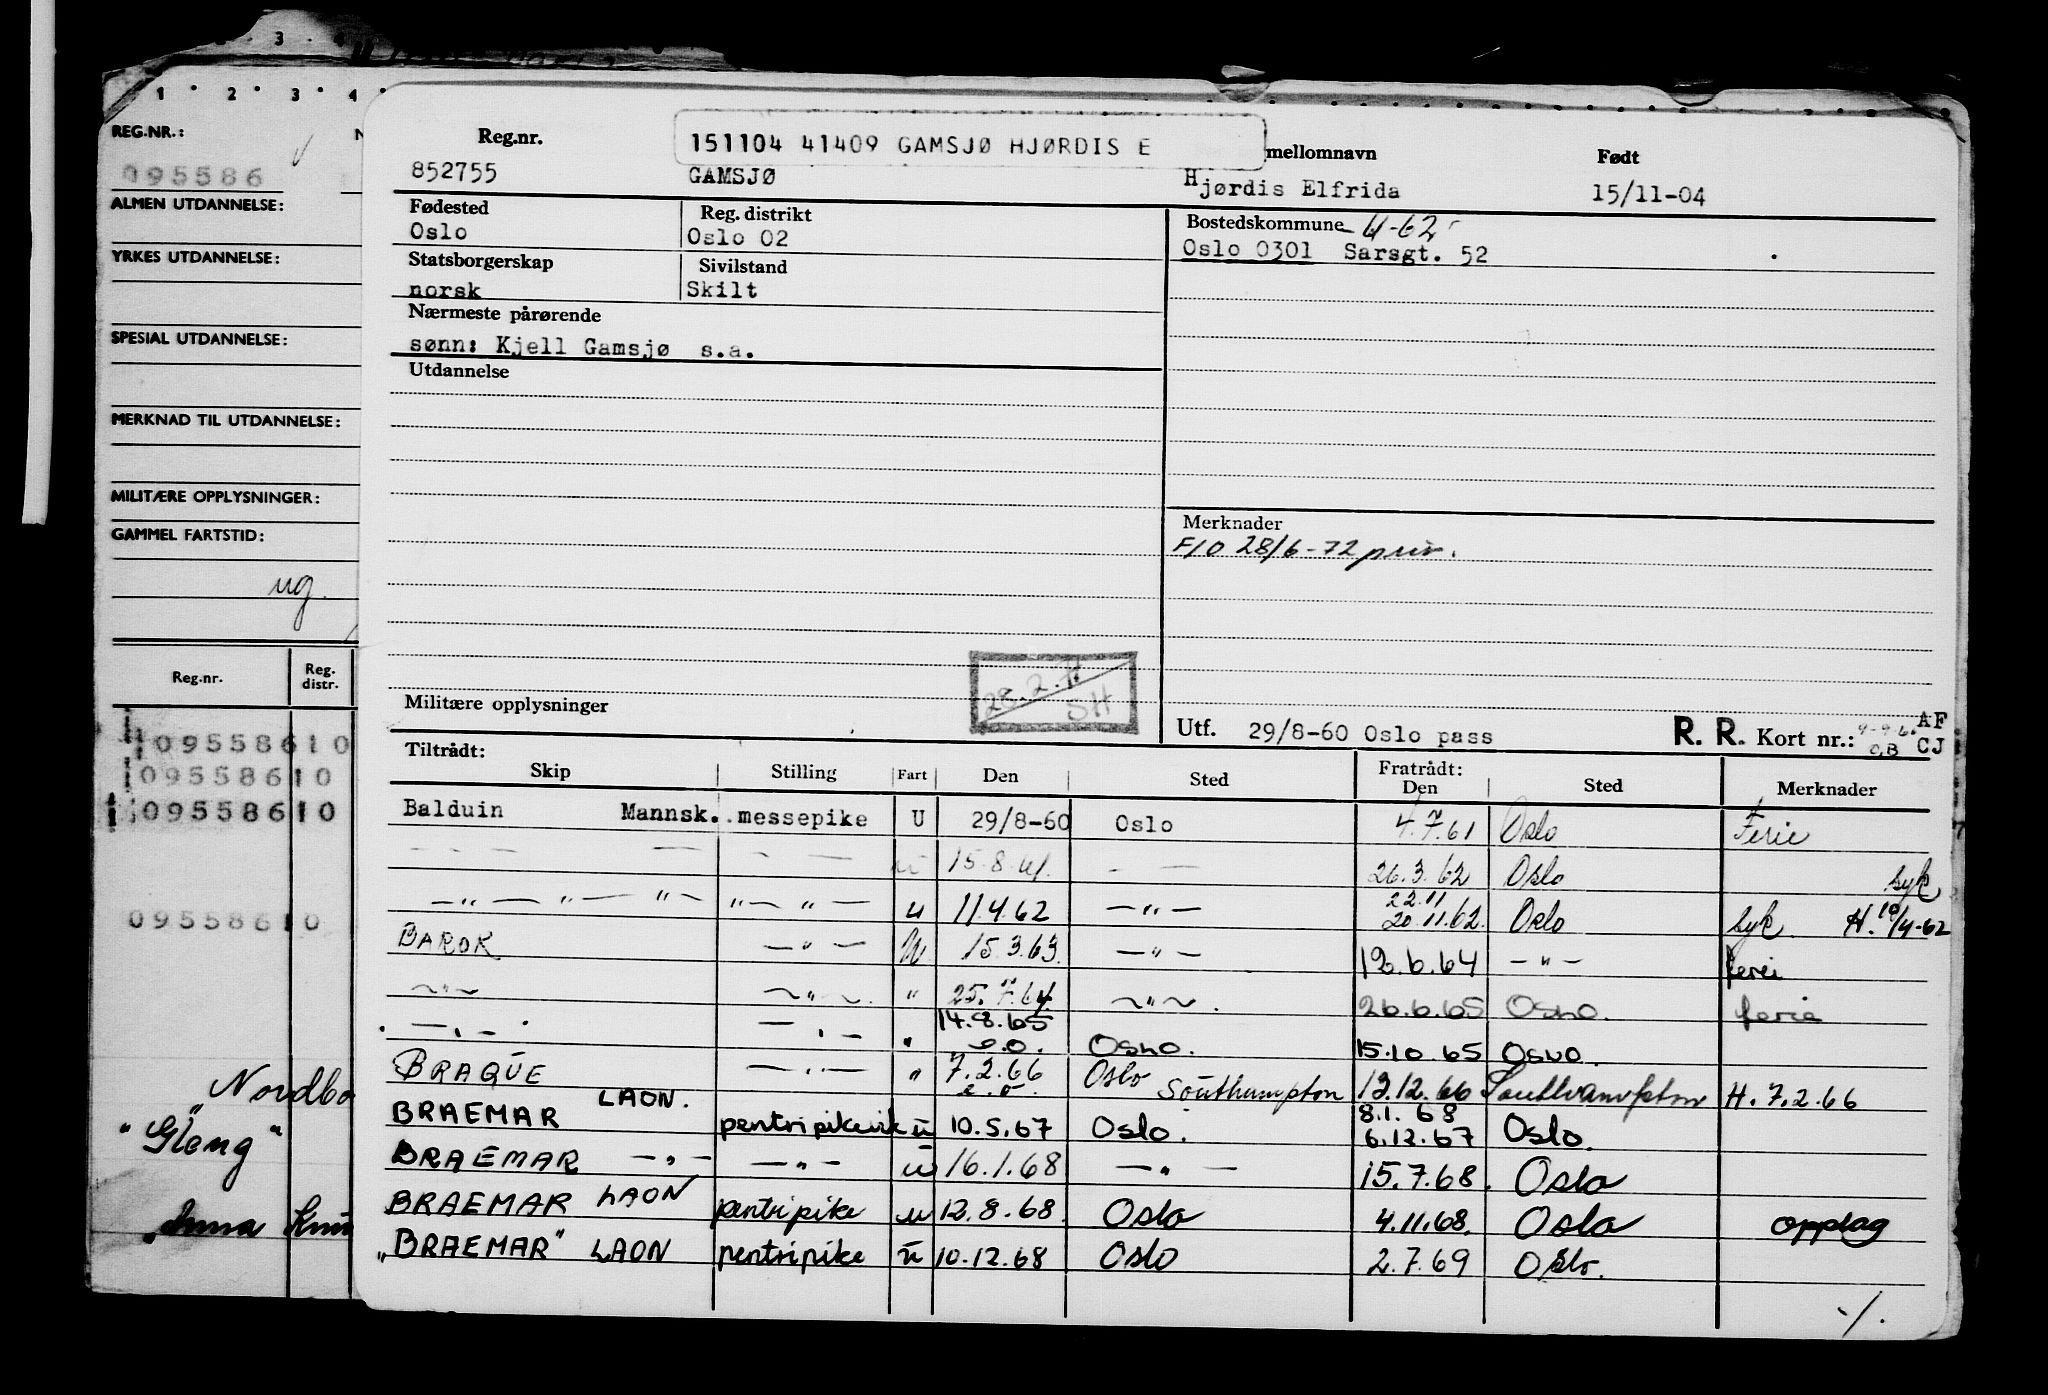 1 2 3 4
REG.NR.:
095586
ALMEN UTDANNELSE:
YRKES UTDANNELSE:
SPESIAL UTDANNELSE:
MERKNAD TIL UTDANNELSE:
MILITÆRE OPPLYSNINGER:
GAMMEL FARTSTID:
ug.
Reg.nr. Reg. distr.
09558610
09558610
09558610
09558610
Nordbo
"Glong"
Anna Knu
Reg.nr. 151104 41409 GAMSJØ HJØRDIS E mellomnavn Født
852755 GAMSJØ Hjørdis Elfrida 15/11-04
Fødested Reg. distrikt Bostedskommune 4-62
Oslo Oslo 02 Oslo 0301 Sarsgt. 52
Statsborgerskap Sivilstand
norsk Skilt
Nærmeste pårørende
sønn: Kjell Gamsjø s.a.
Utdannelse
Merknader
F/O 28/6-72 priv.
28.2. SH
Militære opplysninger
Utf. 29/8-60 Oslo pass R. R. Kort nr.: AF CJ
Tiltrådt: Fratrådt:
Skip Stilling Fart Den Sted Den Sted Merknader
Balduin Mannsk. messepike U 29/8-60 Oslo 4.7.61 Oslo Ferie
— — — — u 15.8.61. — — 26.3.62 Oslo syk
—"— "— "— "— "— u 11.4.62 —"— 22.11 20.11.62. Oslo syk H. 10/4-62
BAROK —"— U 15.3.63. —"— 12.6.64 —"— ferei
—"— —"— " 25.7.64. —"— . 26.6.65 Oslo. ferie
—"— —"— " 14.8.65 e.o. Oslo. 15.10.65 Oslo.
BRAQUE —"— " 7.2.66 e.o. Oslo Southampton 13.12.66 Southampton H. 7.2.66
BRAEMAR LAON. pentripike u 10.5.67 Oslo. 8.1.68 6.12.67 Oslo.
BRAEMAR —"— —"— u 16.1.68 —"— 15.7.68. Oslo
BRAEMAR LAON pentripike u 12.8.68. Oslo 4.11.68. Oslo opplag
"BRAEMAR" LAON pentripike u 10.12.68 Oslo 2.7.69 Oslo.
-/.